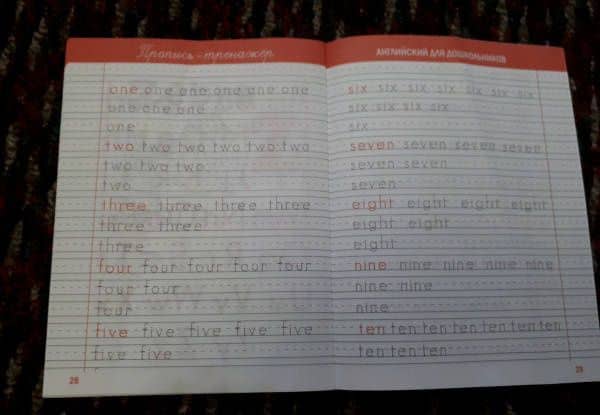 Пропись - тренажер
one one one one one one
one one one
one
two two two two two two
two two two
two
three three three three
three three
three
four four four four four
four four
four
five five five five five
five five
28
АНГЛИЙСКИЙ ДЛЯ ДОШКОЛЬНИКОВ
six six six six six six six
six six six six
six
seven seven seven seven
seven seven
seven
eight eight eight eight
eight eight
eight
nine nine nine nine nine
nine nine
nine
ten ten ten ten ten ten ten
ten ten ten
29